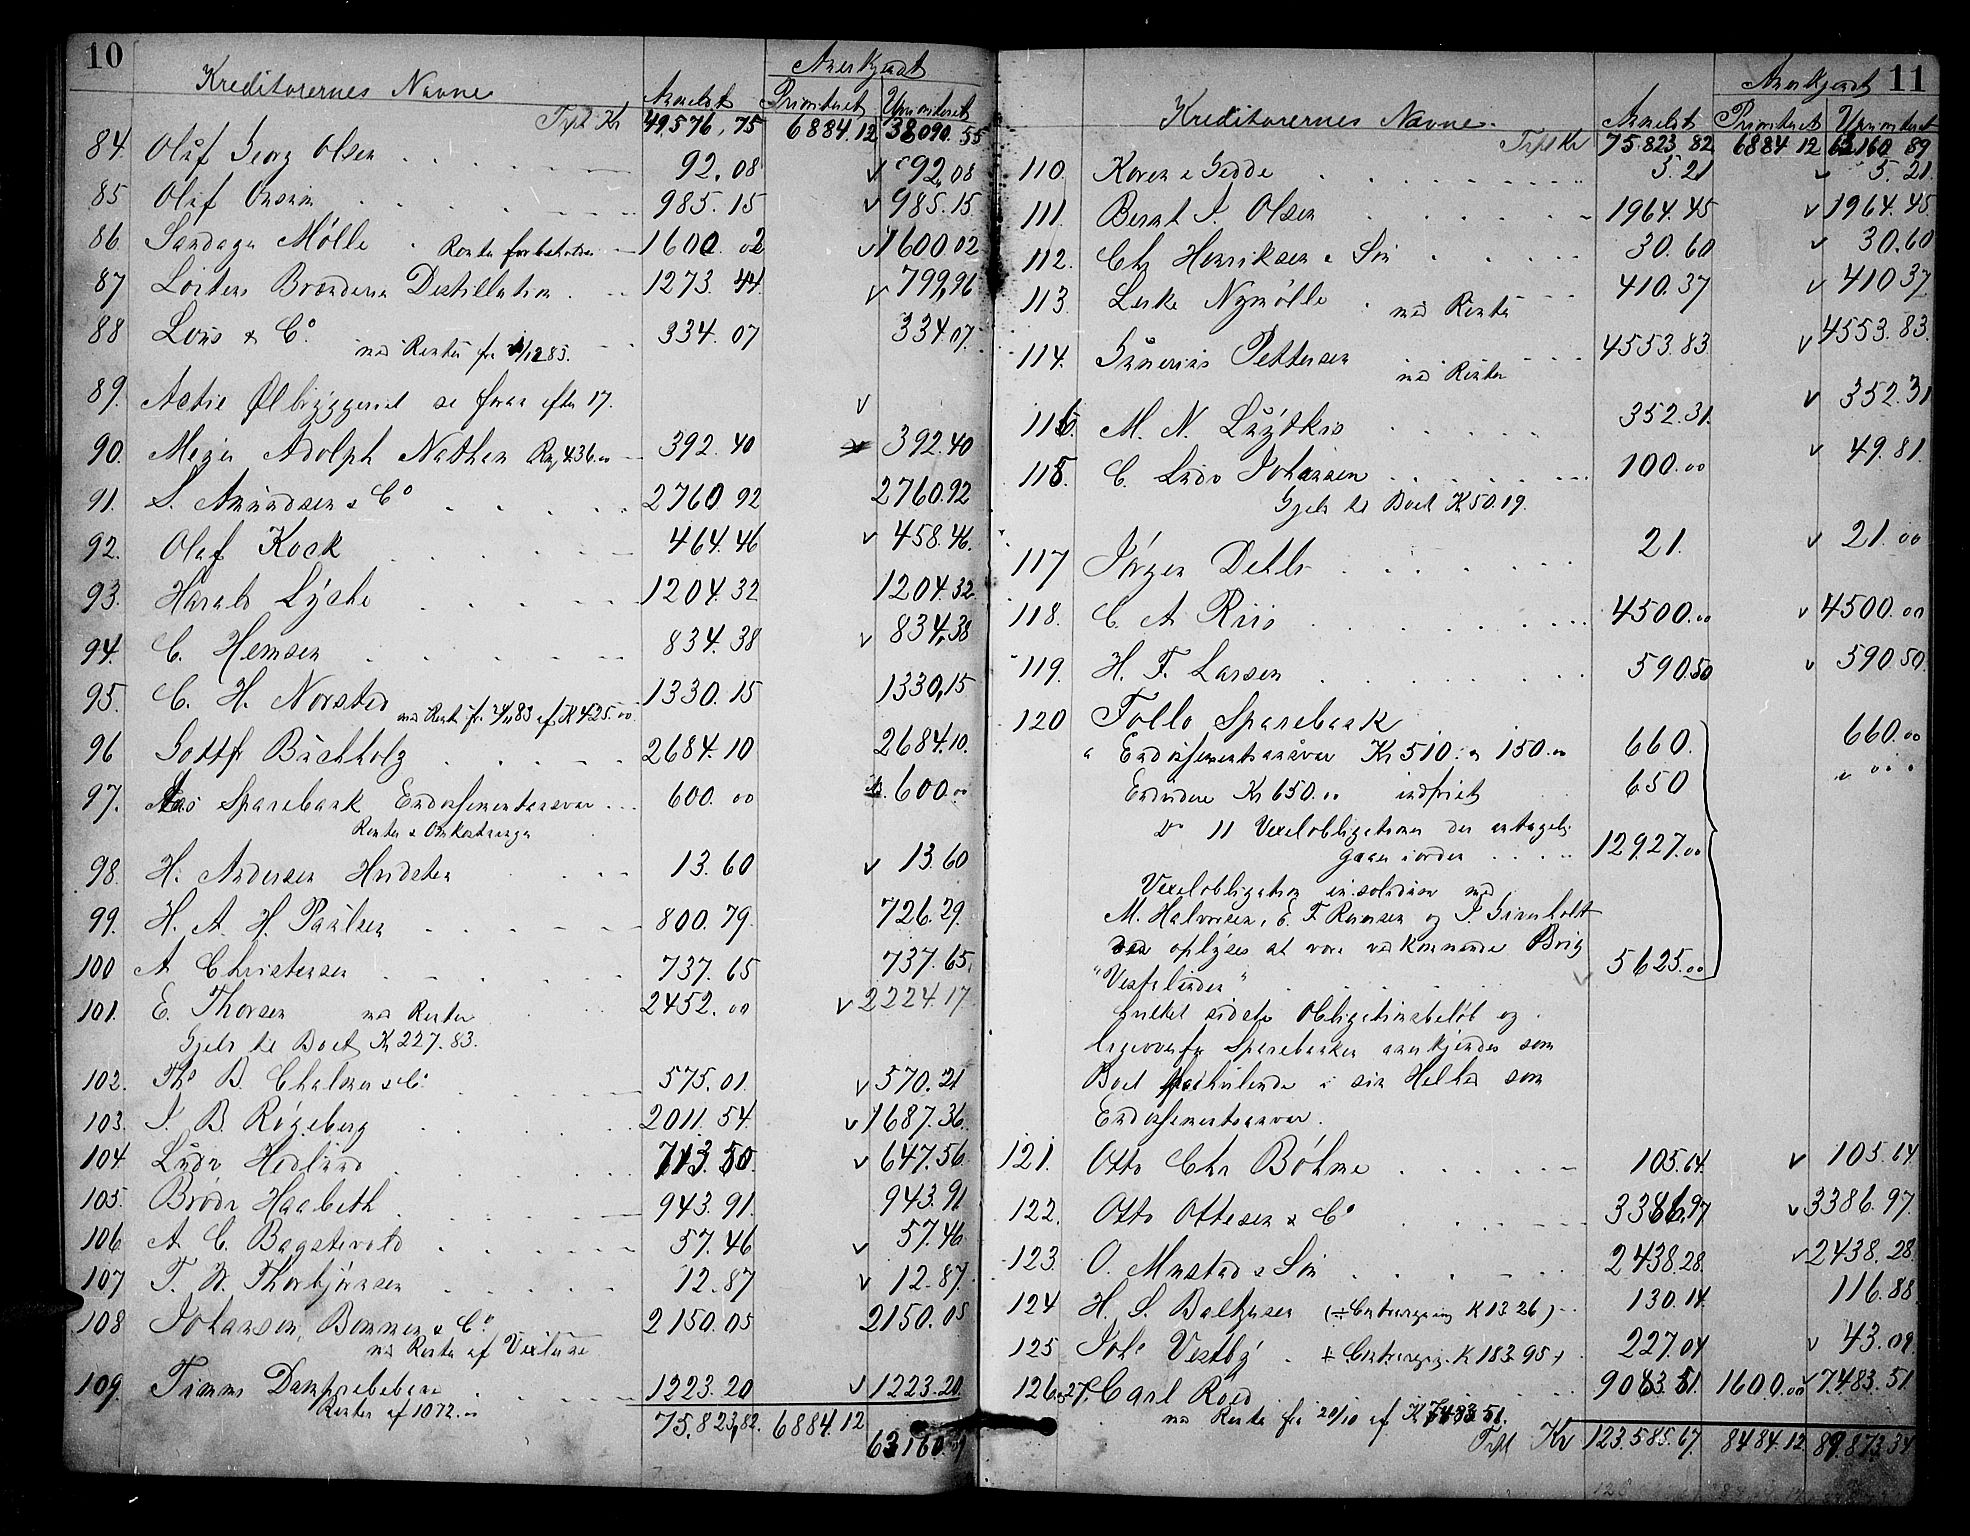 10
Anerkjendt
Kreditorernes Navne Anmeldt Prioriteret Uprioriteret
Trpt Kr 49576,75 6884.12 38090.55
84. Oluf Georg Olsen 92.08 v 92,08
85 Oluf Onsum 985.15 v 985.15
86 Sandager Mølle Renter forbeholdes 1600.02 v 1600.02
87 Løitens Brænderi Destillation 1273.44 v 799,96
88 Lous & Co. med Renter fra 1/12 85. 334.07 334.07
89. Actie Ølbryggeriet se foran efter 17. v
90. Meyer Adolph Nathan Rm 436.00 392.40 392.40
91. S. Amundsen & Co 2760 92 2760.92
92. Oluf Kock 464.46 v 458.46.
93. Harald Lyche 1204.32 1204.32
94. C. Hemsen 834.38 v 834,38
95. C. H. Norsted med Renter fr. 83 af K 425.00 1330.15 1330,15
96 Gottfr Buchholz 2684.10 2684.10.
97. Aas Sparebank Endossementansvar 600.00 600.00
Renter & Omkostninger
98. H. Andersen Hvidsten 13.60 v 13.60
99. H. A. H. Paulsen 800.79. 726.29.
100 A Christensen 737.65 737.65.
101. E. Thorsen med Renter 2452.00 v 2224.17
Gjeld til Boet Kr 227.83.
102. Ths B. Chalmer & Co 575.01. v 570.21
103. J. B. Røgeberg 2011.54. v 1687.36.
104. Ludv Hedlund 713.50. v 647.56
105. Brødr Haabeth 943.91. 943.91
106. A. C. Bagstevold 57.46 v 57.46
107 T. W. Thorbjørnsen 12.87 v 12.87.
108 Johansen, Bommen & Co. 2150.05 2150.05
med Renter af Vexlerne
109. Timms Dampsæbeberi 1223.20 v 1223.20.
Renter af 1072.00
75.823,82. 6884.12
63160.89
Anerkjendt 11
Kreditorernes Navne. Anmeldt Prioriteret Uprioriteret
Trpt Kr 75.823 82 6884 12 63160 89
110. Koren & Gedde 5.21 v 5.21.
111. Bernt J. Olsen 1964.45 v 1964.45
112. Chr Henriksen & Søn 30.60 v 30.60
113. Leske Nymølle med Renter 410.37 v 410 37
114. Gunerius Pettersen med Renter 4553.83. v 4553.83.
116. M. N. Lüytkis 352.31. v 352.31
115. C. Ludv Johansen 100.00 v 49.81.
Gjeld til Boet Kr 50.19.
117 Jørgen Dehli 21. v 21.00
118. C. A Riis 4500.00 v 4500.00
119. H. F. Larsen 590.50 v 590.50.
120 Follo Sparebank
" Endossementsansvar Kr 510. " 150.00 660. 660.00
Endvidere Kr 650.00 indfriet 650
Do 11 Vexelobligationer der antagelig
gaar iorden 12927.00
Vexelobligation in solidum med
M. Halvorsen, E. F. Ramsen og P. Gronholdt
oplyses at være vedkommende Brig
"Vestalinden" 5625.00
hvilket sidste Obligationsbeløb og
ligeoverfor Sparebanken anerkjendes som
Boet i sin Helhed som
Endossementsansvar.
121. Otto Chr Bøhme 105.64. v 105.64
122. Otto Ottesen & Co 3386.97 v 3386.97.
123. O. Mustad & Søn 2438.28. v 2438.28
124 H. S. Balthzersen (÷ Contraregning K 13.26) 130.14. 116.88.
125 Johs Vestby ÷ Contraregng. K 183.95 227.04 v 43.09
126 & 27. Carl Roed 9083.51. 1600.00 v 7483.51.
med Renter fra 20/10 af K 7483 51.
Trpt Kr 123.585.67. 8484.12 89.873.34